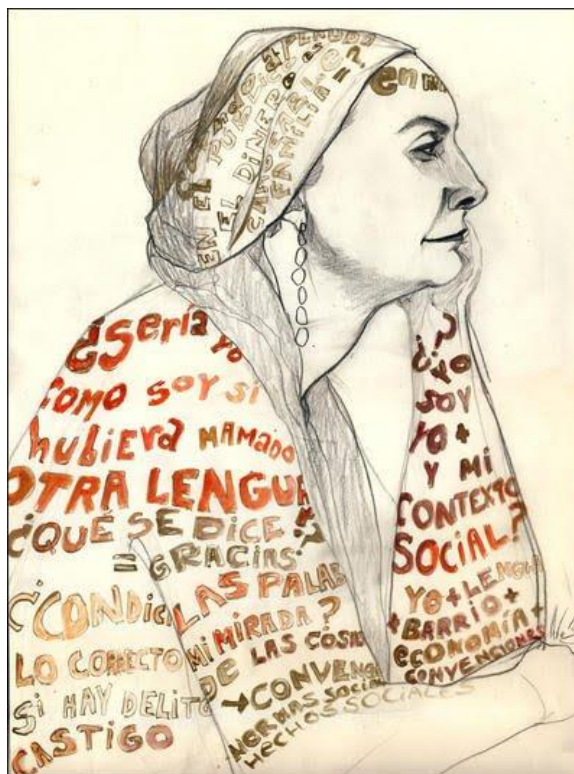 EN EL PÚBLICO
EL DINERO
FAMILIA = ?
en mi
¿sería yo
como soy si
hubiera mamado
OTRA LENGUA
¿QUÉ SE DICE?
= GRACIAS
¿CONDICI LAS PALAB
LO CORRECTO MI MIRADA?
DE LAS COSAS
SI HAY DELITO → CONVENC
CASTIGO NORMAS SOCIAL
HECHOS SOCIALES
¿?
¿YO
SOY
YO +
Y MI
CONTEXTO
SOCIAL?
YO + LENGUA
+ BARRIO +
ECONOMÍA +
CONVENCIONES